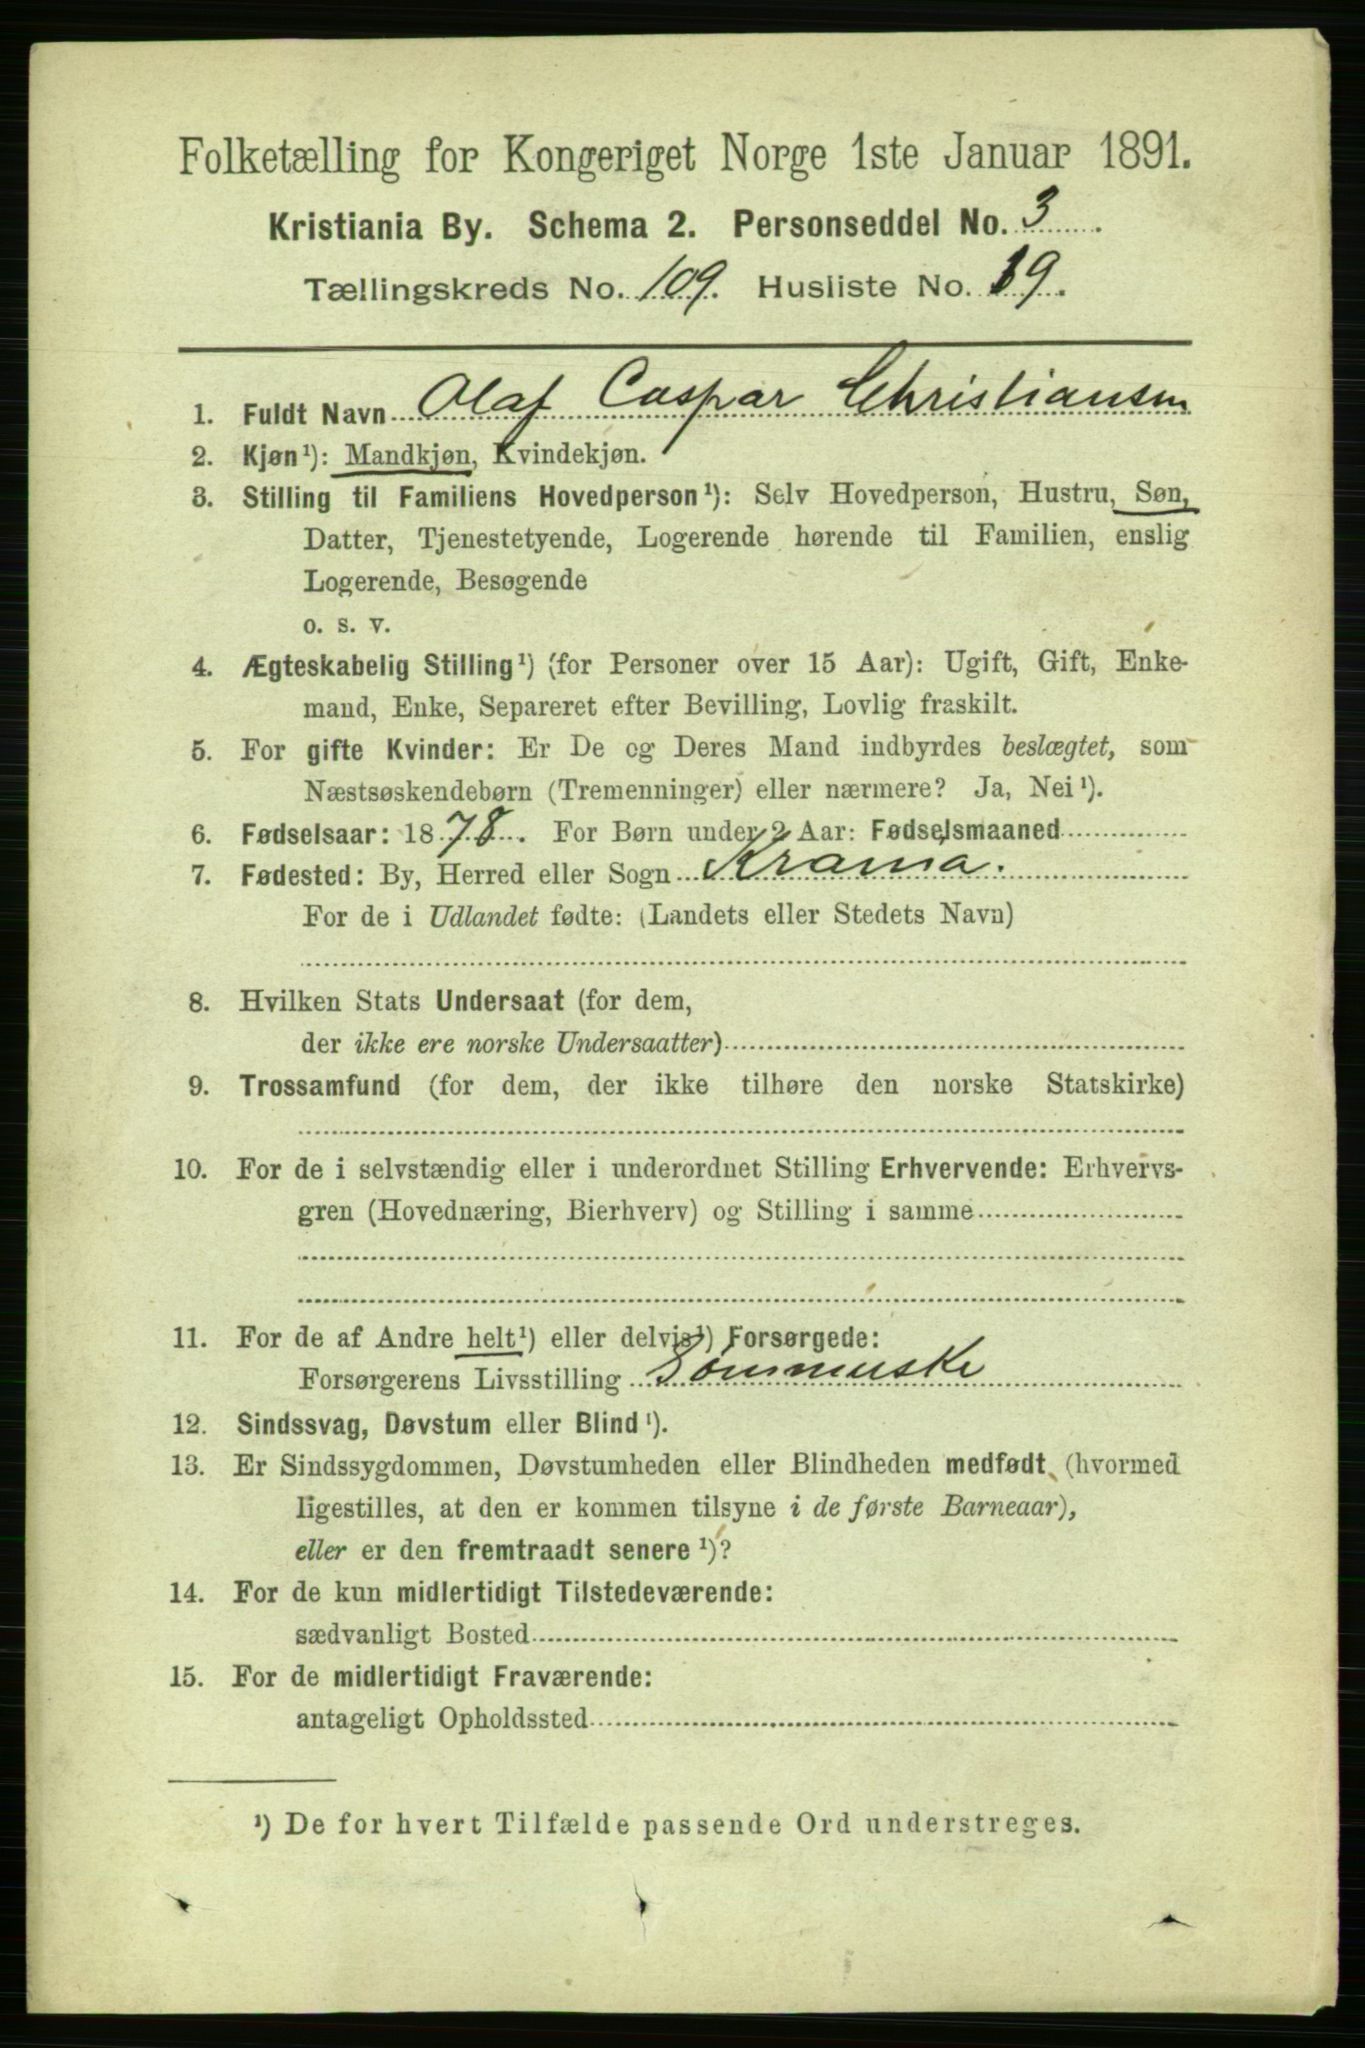 Folketælling for Kongeriget Norge 1ste Januar 1891.
Kristiania By. Schema 2. Personseddel No. 3
Tællingskreds No. 109. Husliste No. 19.
1. Fuldt Navn Olaf Caspar Christiansen
2. Kjøn¹): Mandkjøn, Kvindekjøn.
3. Stilling til Familiens Hovedperson¹): Selv Hovedperson, Hustru, Søn,
Datter, Tjenestetyende, Logerende hørende til Familien, enslig
Logerende, Besøgende
o. s. v.
4. Ægteskabelig Stilling¹) (for Personer over 15 Aar): Ugift, Gift, Enke-
mand, Enke, Separeret efter Bevilling, Lovlig fraskilt.
5. For gifte Kvinder: Er De og Deres Mand indbyrdes beslægtet, som
Næstsøskendebørn (Tremenninger) eller nærmere? Ja, Nei¹).
6. Fødselsaar: 1878. For Børn under 2 Aar: Fødselsmaaned
7. Fødested: By, Herred eller Sogn Krania.
For de i Udlandet fødte: (Landets eller Stedets Navn)
8. Hvilken Stats Undersaat (for dem,
der ikke ere norske Undersaatter)
9. Trossamfund (for dem, der ikke tilhøre den norske Statskirke)
10. For de i selvstændig eller i underordnet Stilling Erhvervende: Erhvervs-
gren (Hovednæring, Bierhverv) og Stilling i samme
11. For de af Andre helt¹) eller delvis¹) Forsørgede:
Forsørgerens Livsstilling
12. Sindssvag, Døvstum eller Blind¹).
13. Er Sindssygdommen, Døvstumheden eller Blindheden medfødt (hvormed
ligestilles, at den er kommen tilsyne i de første Barneaar),
eller er den fremtraadt senere¹)?
14. For de kun midlertidigt Tilstedeværende:
sædvanligt Bosted
15. For de midlertidigt Fraværende:
antageligt Opholdssted
¹) De for hvert Tilfælde passende Ord understreges.